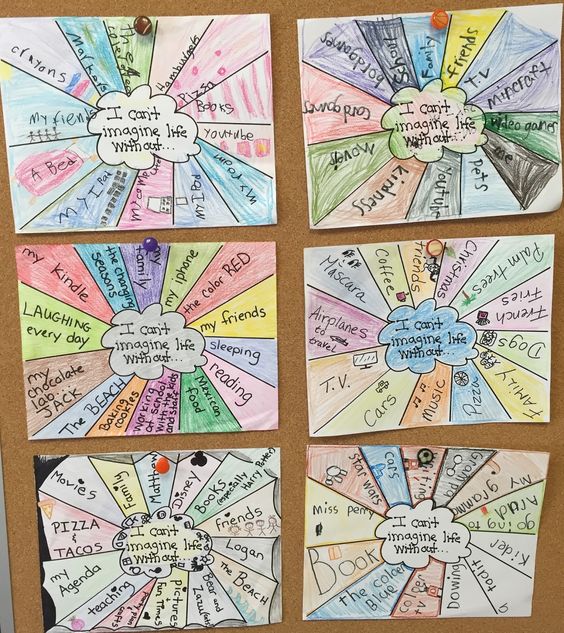 I can't
imagine life
without...
crayons
Markers
Hamburgers
Pizza
Books
Youtube
my room
my IPod
MY IPad
A Bed
I can't
imagine life
without...
cardgames
boardgames
Family
friends
t.v
mincraft
video games
me
pets
Youtube
kindness
movies
I can't
imagine life
without...
my Kindle
the changing
seasons
my
family
my iphone
the color RED
my friends
sleeping
reading
Mexican
food
working
at school
with the kids
and staff
Baking
cookies
The BEACH
my
chocolate
lab -
JACK
LAUGHING
every day
I can't
imagine life
without...
Airplanes
to
travel
Mascara
Coffee
friends
Christmas
Palm trees
French
Fries
DOgs
FAMILY
Pizza
MUSIC
Cars
T.V.
I can't
imagine life
without...
Movies
Family
Matthew
Disney
BOOKS
(especially
Harry Potter)
friends
Logan
The BEACH
Bear and
Zazu
pictures
Fun Times
teaching
my Agenda
PIZZA
&
TACOS
I can't
imagine life
without...
Miss Perry
Star wars
Cars
my gramma
going to
Kider
the color
Book